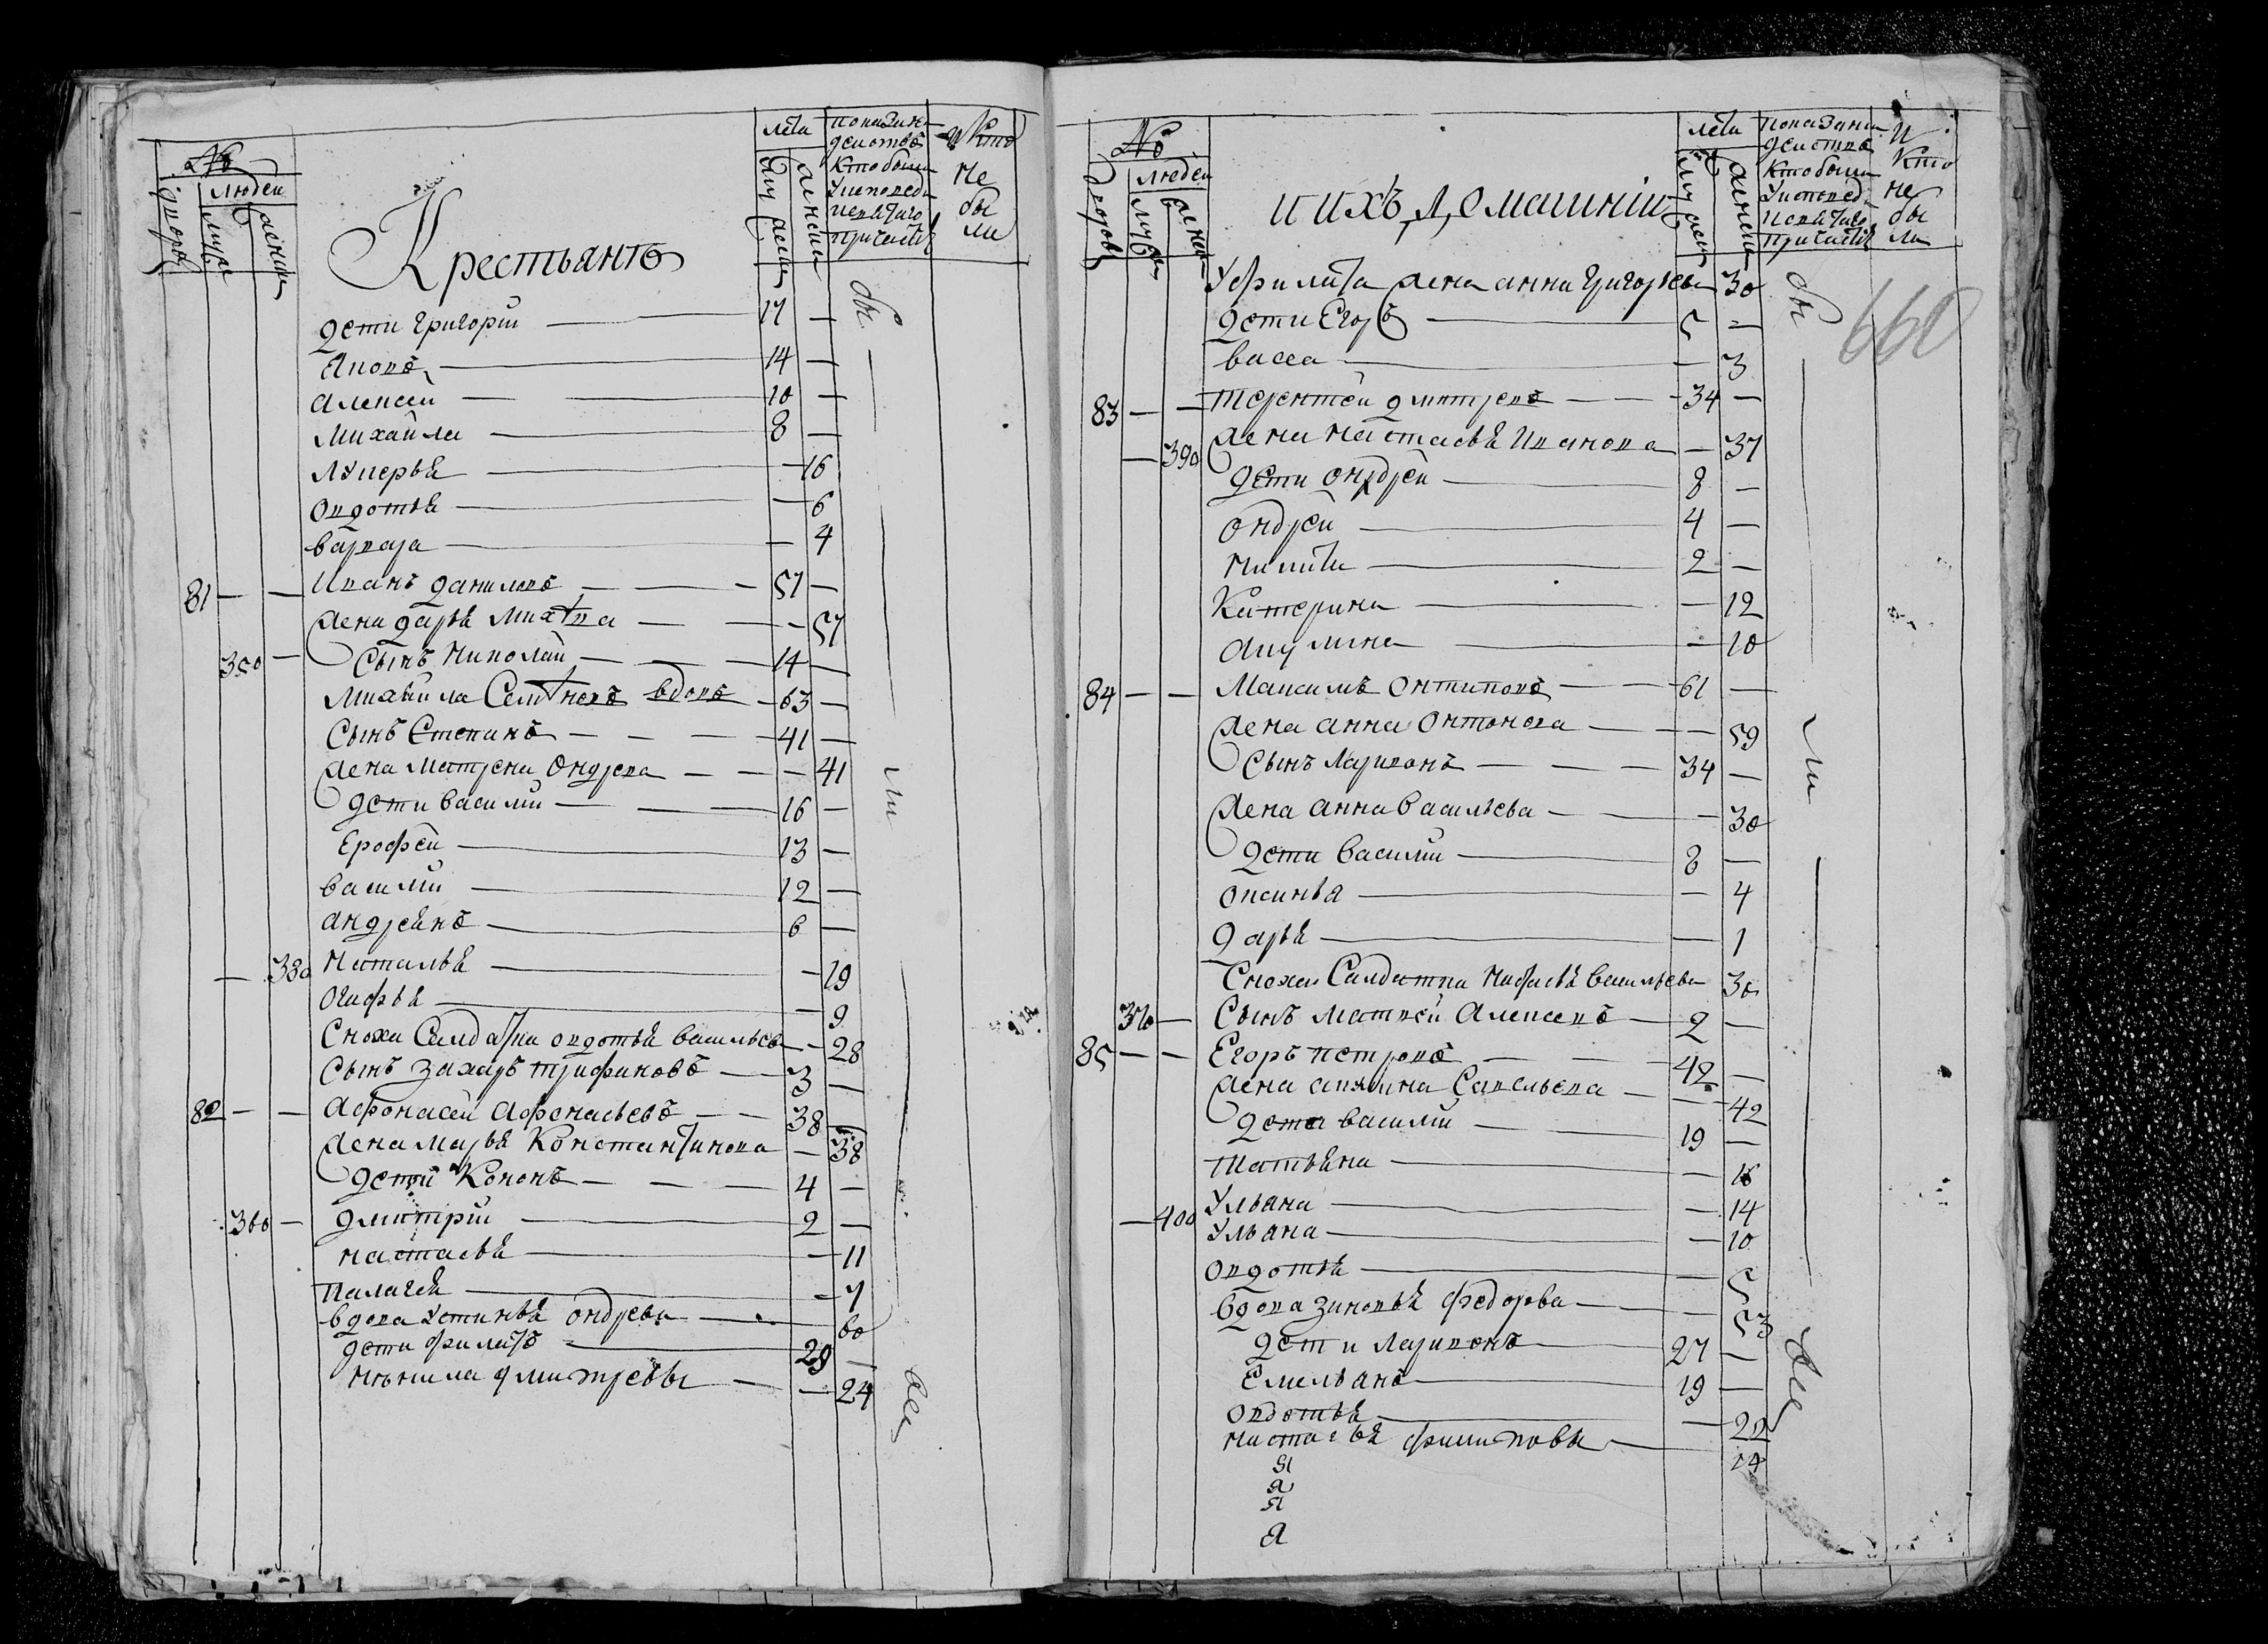 №
людеи
дворовъ
муж
женск
Крестьянъ
лета
муж
женск
показание
действъ
Кто были
У исповеди
и святаго
причастия
и Кто
не
бы
ли
дети григории — 17 —
Аковъ — 14 —
алексеи — 10 —
михаила — 8 —
лукерья — 16
овдотья — 6
варвара — 4
81 — — Иванъ даниловъ — 57 —
жена дарья михева — 57
350 — Сынъ николаи — 14 —
михаила Семеновъ вдовъ — 63 —
Сынъ Степанъ — 41 —
жена матрена Ондрева — 41
дети василии — 16 —
Ерофеи — 13 —
василии — 12 —
андреянъ — 6 —
— 380 наталья — 19
огафья — 9
Сноха Салдатка овдотья васильева — 28
Сынъ захаръ трифановъ — 3 —
82 — — Афонасеи Афонасьевъ — 38 —
жена марья Константинова — 38
дети Кононъ — 4 —
360 — дмитрии — 2 —
настасья — 11
палагея — 7
вдова устинья ондрева — 60
дети филатъ — 29 —
дмитревы — 24
бы
ли
все
№
людеи
дворовъ
муж
женск
и ихъ домашнии
лета
муж
женск
показание
действъ
Кто были
У исповеди
и святаго
причастия
и
Кто
не
бы
ли
660
У филата жена анна григорьева 30
дети Егоръ — 5 —
васса — 3
83 — — терентеи дмитревъ — 34 —
— 390 жена настасья Иванова — 37
дети ондреи — 8 —
ондреи — 4 —
никита — 2 —
Катерина — 12
акулина — 10
84 — — Максимъ онтиповъ — 61 —
жена анна Онтонова — 59
Сынъ ларивонъ — 34 —
жена анна васильева — 30
дети василии — 8 —
оксинья — 4
дарья — 1
Сноха Салдатка васильева 30
370 — Сынъ матвеи Алексевъ — 2 —
85 — — Егоръ петровъ — 42 —
жена акулина Савельева — 42
дети василии — 19 —
татьяна — 16
Ульяна — 14
— 400 Ульяна — 10
овдотья — 5
вдова зиновья федорова — 53
дети ларивонъ — 27 —
Емельянъ — 19 —
овдотья — 22
настасья филиповы — 14
я
а
я
а
бы
ли
все